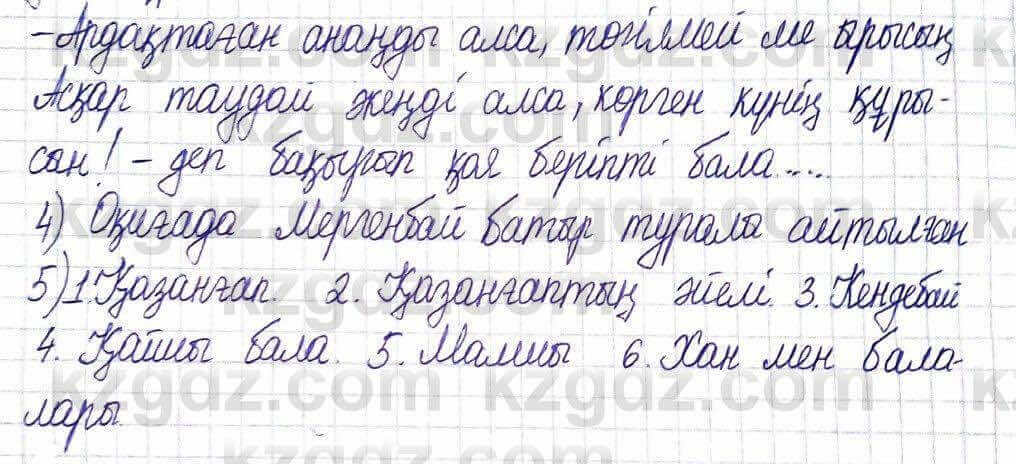 -Ардақтаған анаңды алса, төгілмей ме ырысың
Асқар таудай жеңді алса, көрген күнің құры-
сын! - деп бақырып қоя беріпті бала.....
4) Оқиғада Мергенбай батыр туралы айтылған
5) 1. Қазанғап. 2. Қазанғаптың әйелі. 3. Кендебай
4. Қойшы бала. 5. Малшы 6. Хан мен бала-
лары.
kzgdz.com